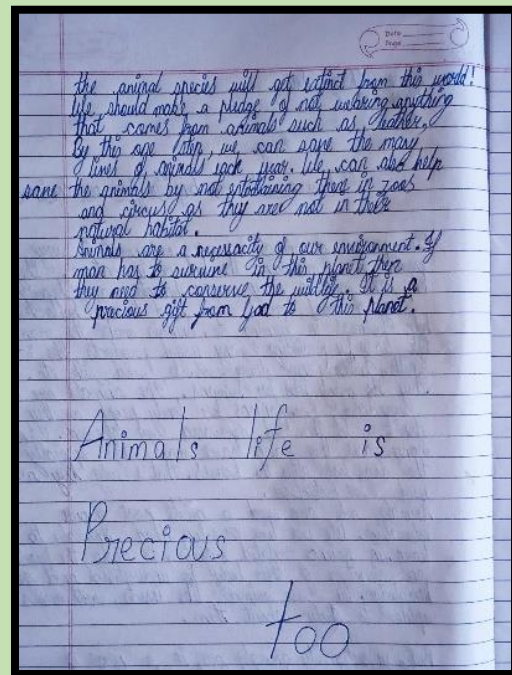 Date
Page
the animal species will get extinct from this world!
We should make a pledge of not wearing anything
that comes from animals such as leather.
By this one step, we can save the many
lives of animals each year. We can also help
save the animals by not entertaining there in zoos
and circus as they are not in their
natural habitat.
Animals are a necessacity of our environment. If
man has to survive in this planet then
they need to conserve the wildlife. It is a
pracious gift from God to this planet.
Animals life is
Precious
too